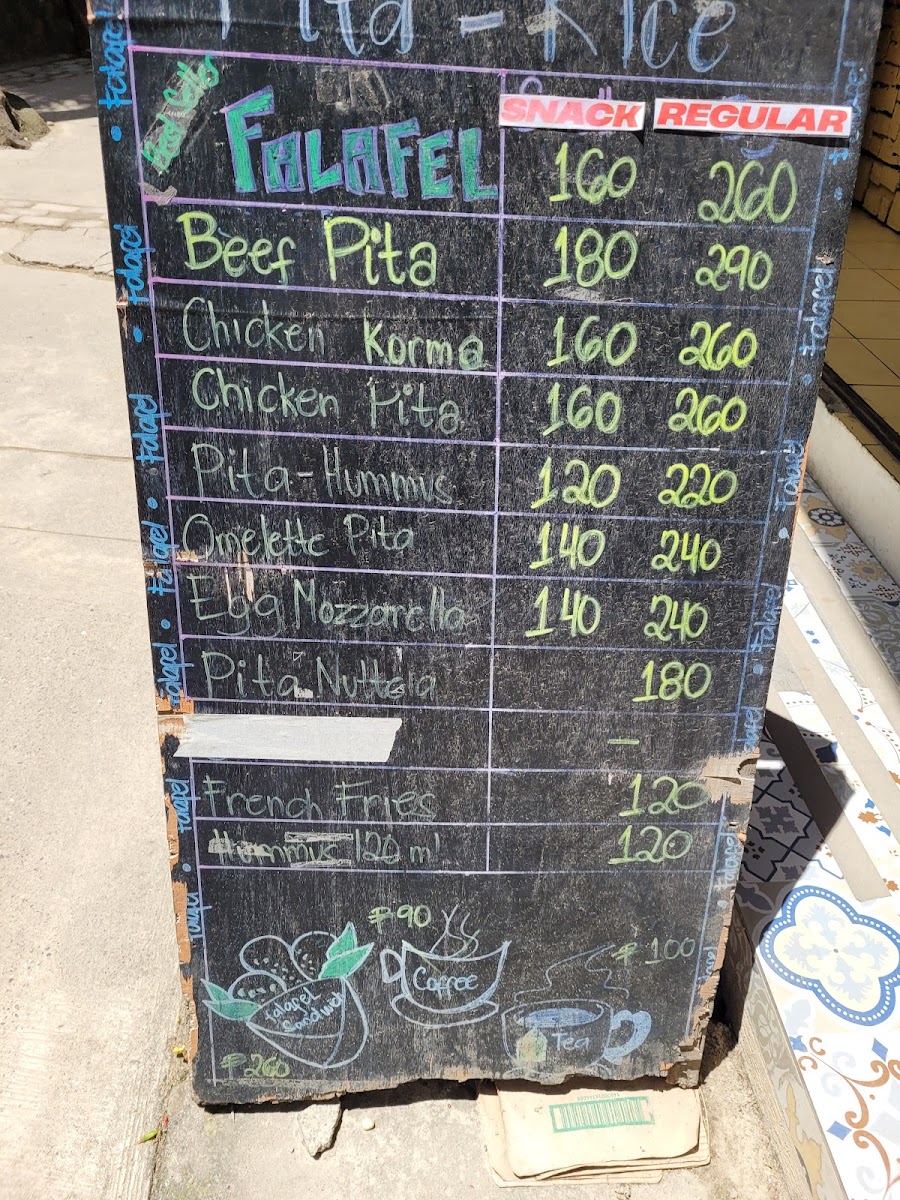 Pita - Rice
Best Seller
FALAFEL
SNACK REGULAR
160 260
Beef Pita 180 290
Chicken Korma 160 260
Chicken Pita 160 260
Pita-Hummus 120 220
Omelette Pita 140 240
Egg Mozzarella 140 240
Pita Nuttela 180
–
French Fries 120
Hummus 120 ml 120
₱90
₱100
Coffee
Falafel
Sandwich
Tea
₱260
falafel • falafel • falafel • falafel • falafel • falafel • falafel
falafel • falafel • falafel • falafel • falafel • falafel • falafel